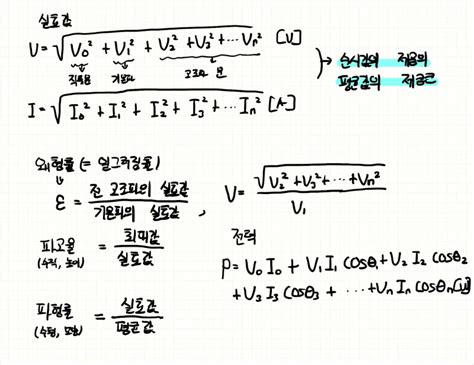 실효값
V = √(V₀² + V₁² + V₂² + V₃² + ⋯ Vₙ²) [V]
직류분 기본파 고조파 분
→ 순시값의 제곱의 평균값의 제곱근
I = √(I₀² + I₁² + I₂² + I₃² + ⋯ Iₙ²) [A]
왜형률 (= 일그러짐률)
ε = 전 고조파의 실효값 / 기본파의 실효값 , V = √(V₂² + V₃² + ⋯ + Vₙ²) / V₁
파고율 = 최대값 / 실효값
(수직, 높이)
전력
P = V₀ I₀ + V₁ I₁ cosθ₁ + V₂ I₂ cosθ₂
+ V₃ I₃ cosθ₃ + ⋯ + Vₙ Iₙ cosθₙ [W]
파형률 = 실효값 / 평균값
(수평, 모양)